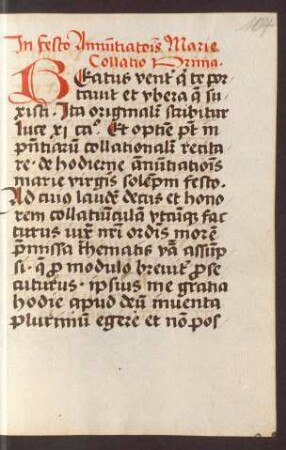 104
In festo Annūtiatiōis Marie
Collatio Prima.
BEatus vent' q̄ te por
tauit et vbera q̄ su
xisti. Ita originalit' scribitur
luce xi ca°. Et optīe pt̄ in
p̄ntiarū collationalit' recita
re. de hodierne annūtiatiōis
marie virgīs solēpni festo.
Ad cuiꝰ laudē decus et hono
rem collatiūculā vtcūqꝫ fac
turus iuxͭ nr̄i ordīs morē
p̄missa thematis vā assūp
si. q̄ ꝓ modulo breuit' ꝓse
cuturus. ipsius me gratia
hodie apud deū inuenta
plurimū egere et nō pos